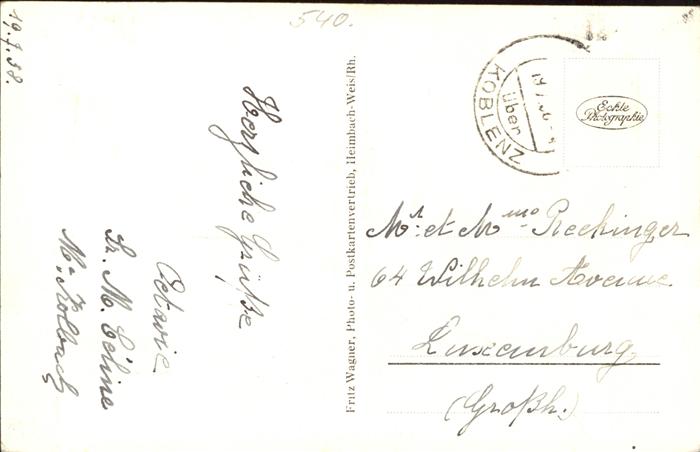 19.7.38.
540.
Herzliche Grüße
Octavie
Sr. M. Céline
M. Kolbach
Fritz Wagner, Photo- u. Postkartenvertrieb, Heimbach-Weis/Rh.
über
KOBLENZ
Echte
Photographie
Mr. et Mme Reckinger
64 Wilhelm Avenue
Luxemburg
(Großh.)